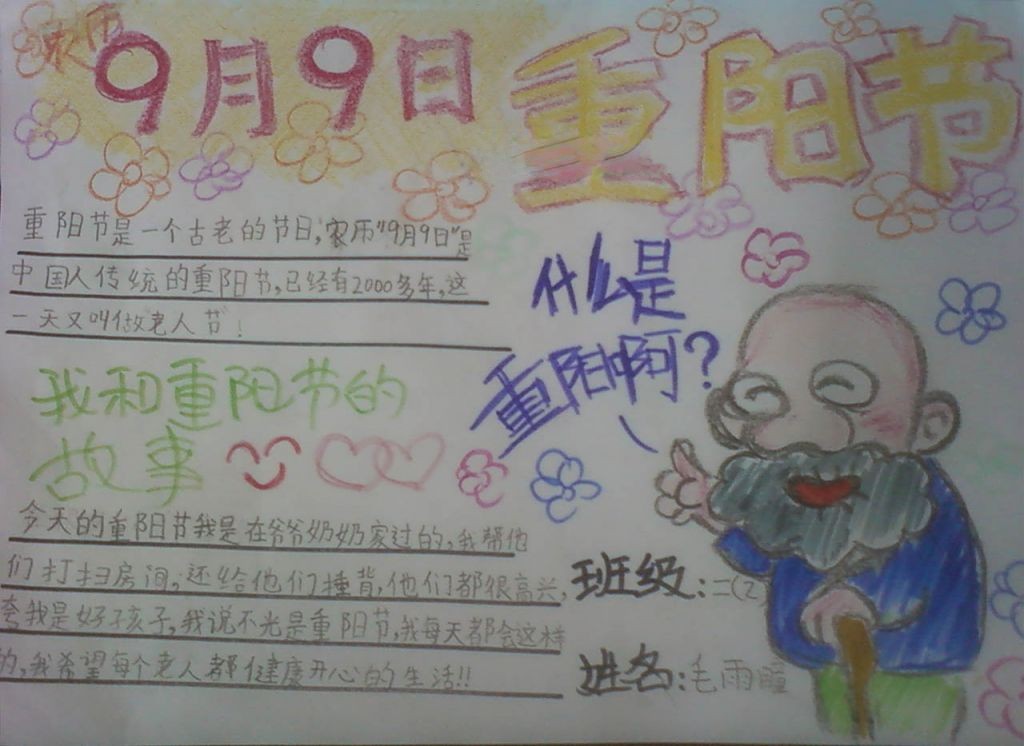 农历
9月9日 重阳节
重阳节是一个古老的节日,农历"9月9日"是
中国人传统的重阳节,已经有2000多年,这
一天又叫做老人节!
什么是
重阳啊?
我和重阳节的
故事
今天的重阳节我是在爷爷奶奶家过的,我帮他
们打扫房间,还给他们捶背,他们都很高兴,
夸我是好孩子,我说不光是重阳节,我每天都会这样
的,我希望每个老人都健康开心的生活!!
班级:二(2)
姓名:毛雨瞳